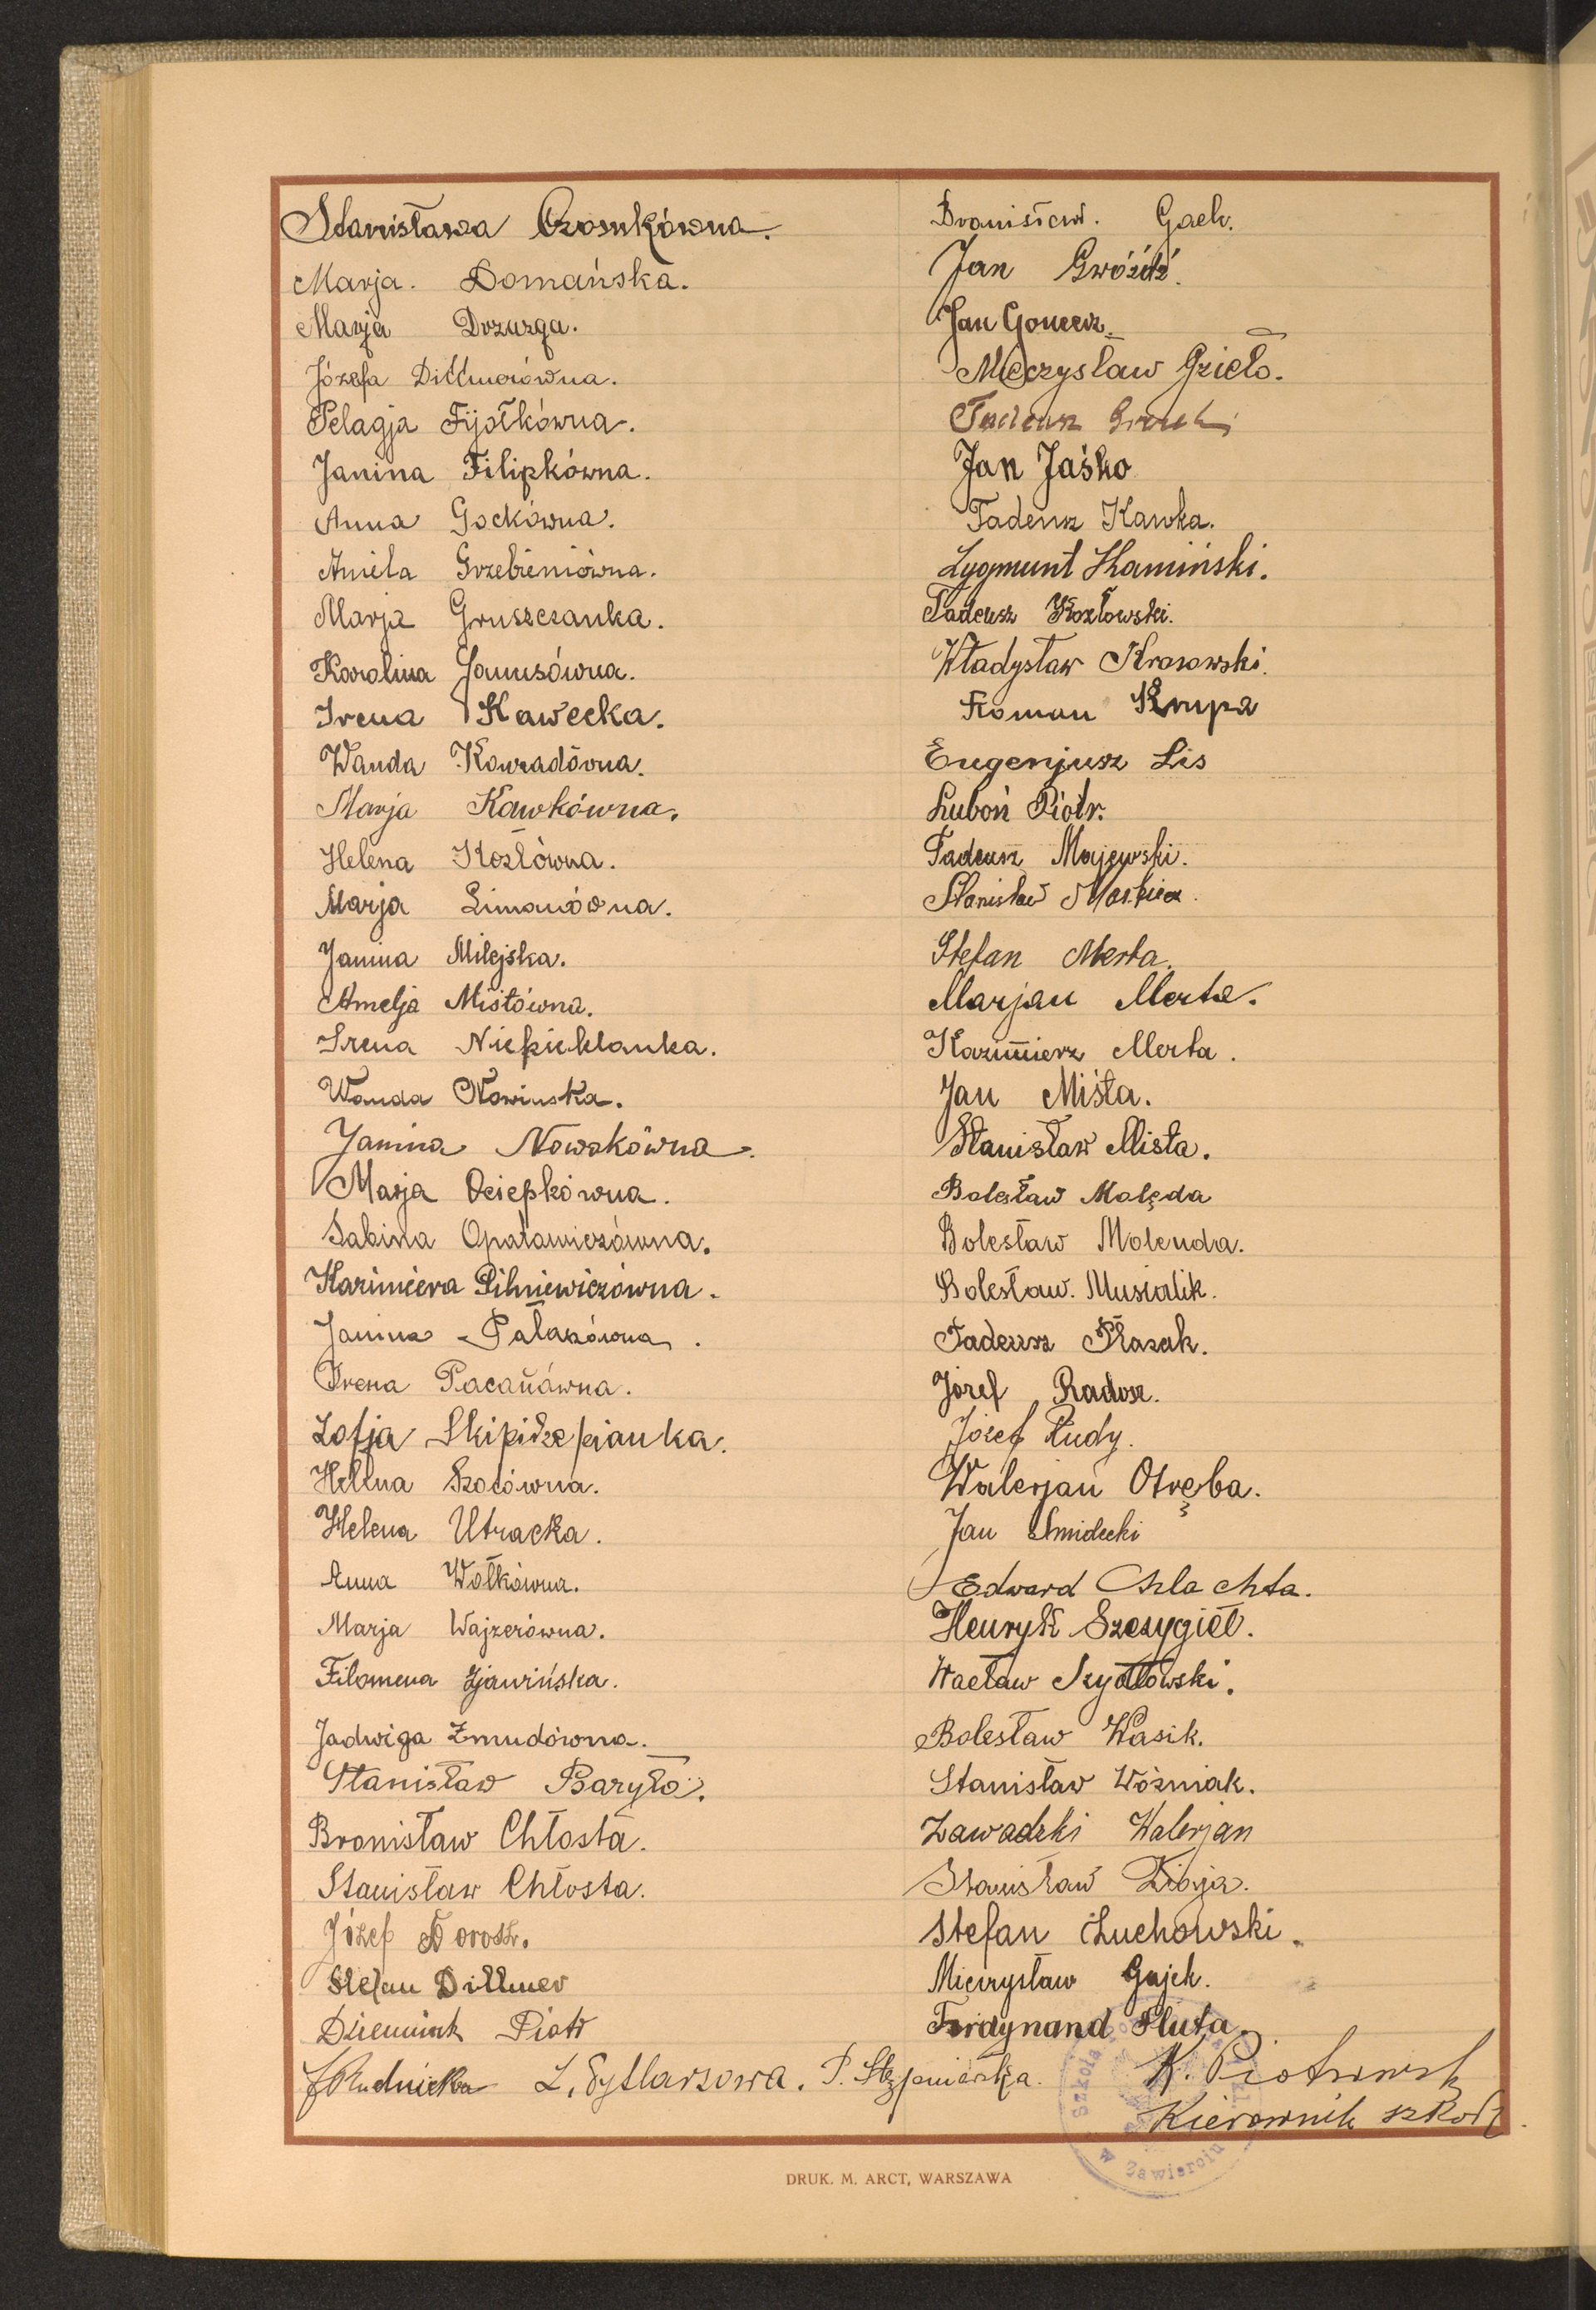 Stanisława Czosnkówna.
Marja. Domańska.
Marja Drzazga.
Józefa Dittmerówna.
Pelagja Fijołkówna.
Janina Filipkówna.
Anna Gockówna.
Aniela Grzebieniówna.
Marja Gruszczanka.
Karolina Janusówna.
Irena Kawecka.
Wanda Konradówna.
Marja Kawkówna.
Helena Kozłówna.
Marja Limanówna.
Janina Milejska.
Amelja Misłówna.
Irena Niepieklanka.
Wanda Nowińska.
Janina Nowakówna.
Marja Ociepkówna.
Sabina Opatowiczówna.
Kazimiera Pilniewiczówna.
Janina Pałakówna.
Irena Pacanówna.
Zofja Skipirzepianka.
Helena Szotówna.
Helena Utracka.
Anna Wołkówna.
Marja Wajzerówna.
Filomena Zjawińska.
Jadwiga Żmudówna.
Stanisław Baryło.
Bronisław Chłosta.
Stanisław Chłosta.
Józef Dorosz.
Stefan Dittmer
Dziemink Piotr
Bronisław. Gach.
Jan Gwóźdź.
Jan Goncerz.
Mieczysław Gzieło.
Tadeusz
Jan Jaśko
Tadeusz Kawka.
Zygmunt Kamiński.
Tadeusz Kozłowski.
Władysław Krasowski.
Roman Krupa
Eugenjusz Lis
Luboń Piotr.
Tadeusz Majewski.
Stanisław
Stefan Merta.
Marjan Merta.
Kazimierz Merta.
Jan Miśta.
Stanisław Mista.
Bolesław Molęda
Bolesław Molenda.
Bolesław. Musialik.
Tadeusz Płazak.
Józef Radosz.
Józef Rudy.
Walerjan Otręba.
Jan Smidecki
Edward Szlachta.
Henryk Szczygieł.
Wacław Szydłowski.
Bolesław Wąsik.
Stanisław Woźniak.
Zawadzki Walerjan
Stanisław Zioja.
Stefan Żuchowski.
Mieczysław Gajek.
Ferdynand Pluta.
J Rudnicka L. Sytlarsowa. P. Stępniewska. K. Piotrowski
Kierownik szkoły
Szkoła
w Zawierciu
DRUK. M. ARCT, WARSZAWA